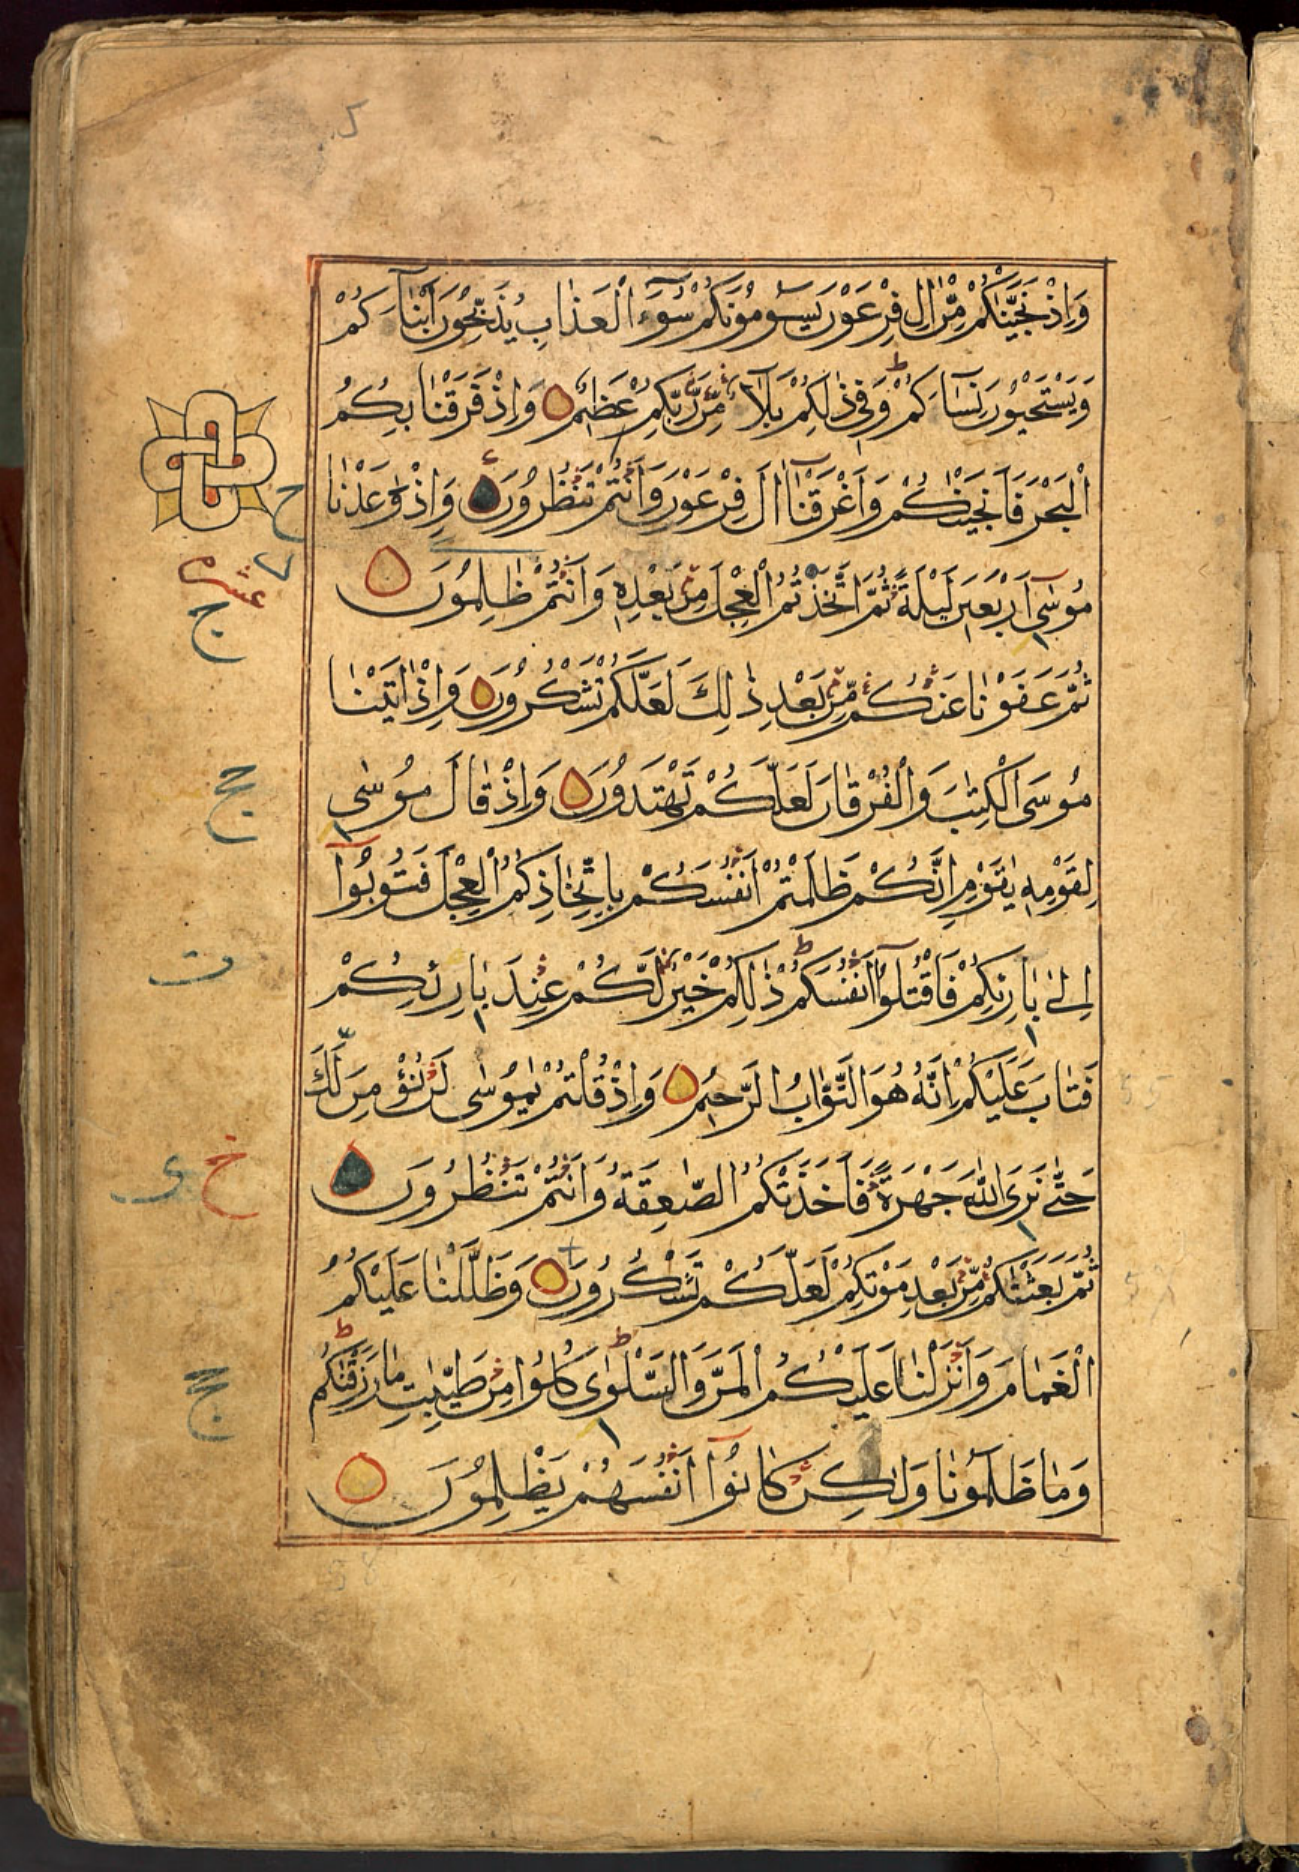 وَاِذْ نَجَّيْنٰكُمْ مِّنْ اٰلِ فِرْعَوْنَ يَسُوْمُوْنَكُمْ سُوْٓءَ الْعَذَابِ يُذَبِّحُوْنَ اَبْنَآءَكُمْ
وَيَسْتَحْيُوْنَ نِسَآءَكُمْ ط وَفِيْ ذٰلِكُمْ بَلَآءٌ مِّنْ رَّبِّكُمْ عَظِيْمٌ وَاِذْ فَرَقْنَا بِكُمُ
الْبَحْرَ فَاَنْجَيْنٰكُمْ وَاَغْرَقْنَآ اٰلَ فِرْعَوْنَ وَاَنْتُمْ تَنْظُرُوْنَ وَاِذْ وٰعَدْنَا
ح
مُوْسٰٓى اَرْبَعِيْنَ لَيْلَةً ثُمَّ اتَّخَذْتُمُ الْعِجْلَ مِنْ بَعْدِهٖ وَاَنْتُمْ ظٰلِمُوْنَ
عشره
ج
ثُمَّ عَفَوْنَا عَنْكُمْ مِّنْ بَعْدِ ذٰلِكَ لَعَلَّكُمْ تَشْكُرُوْنَ وَاِذْ اٰتَيْنَا
مُوْسَى الْكِتٰبَ وَالْفُرْقَانَ لَعَلَّكُمْ تَهْتَدُوْنَ وَاِذْ قَالَ مُوْسٰى
لِقَوْمِهٖ يٰقَوْمِ اِنَّكُمْ ظَلَمْتُمْ اَنْفُسَكُمْ بِاتِّخَاذِكُمُ الْعِجْلَ فَتُوْبُوْٓا
اِلٰى بَارِئِكُمْ فَاقْتُلُوْٓا اَنْفُسَكُمْ ط ذٰلِكُمْ خَيْرٌ لَّكُمْ عِنْدَ بَارِئِكُمْ
ت
فَتَابَ عَلَيْكُمْ اِنَّهٗ هُوَ التَّوَّابُ الرَّحِيْمُ وَاِذْ قُلْتُمْ يٰمُوْسٰى لَنْ نُّؤْمِنَ لَكَ
حَتّٰى نَرَى اللّٰهَ جَهْرَةً فَاَخَذَتْكُمُ الصّٰعِقَةُ وَاَنْتُمْ تَنْظُرُوْنَ
خ ى
ثُمَّ بَعَثْنٰكُمْ مِّنْ بَعْدِ مَوْتِكُمْ لَعَلَّكُمْ تَشْكُرُوْنَ وَظَلَّلْنَا عَلَيْكُمُ
الْغَمَامَ وَاَنْزَلْنَا عَلَيْكُمُ الْمَنَّ وَالسَّلْوٰى ط كُلُوْا مِنْ طَيِّبٰتِ مَا رَزَقْنٰكُمْ ط
وَمَا ظَلَمُوْنَا وَلٰكِنْ كَانُوْٓا اَنْفُسَهُمْ يَظْلِمُوْنَ